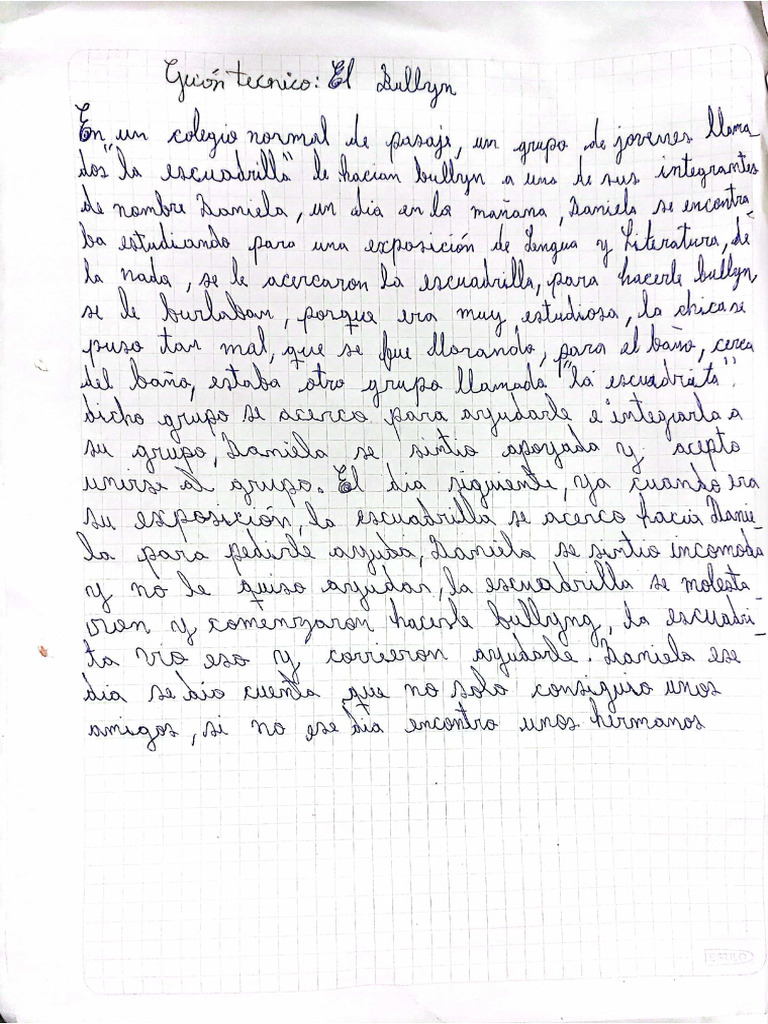 Guión tecnico: El Bullyn
En un colegio normal de pasaje, un grupo de jovenes llama
dos "la escuadrilla" le hacian bullyn a uno de sus integrantes
de nombre Daniela, un dia en la mañana, Daniela se encontra
ba estudiando para una exposición de Lengua y Literatura, de
la nada, se le acercaron la escuadrilla, para hacerle bullyn,
se le burlaban, porque era muy estudiosa, la chica se
puso tan mal, que se fue llorando, para el baño, cerca
del baño, estaba otro grupo llamada "la escuadrita".
dicho grupo se acerco para ayudarle e integrarla a
su grupo, Daniela se sintio apoyada y acepto
unirse al grupo. El dia siguiente, ya cuando era
su exposición, la escuadrilla se acerco hacia Danie-
la para pedirle ayuda, Daniela se sintio incomoda
y no le quiso ayudar, la escuadrilla se molesta-
ron y comenzaron hacerle bullyng, la escuadri-
ta vio eso y corrieron ayudarle. Daniela ese
dia se dio cuenta que no solo consiguio unos
amigos, si no ese dia encontro unos hermanos